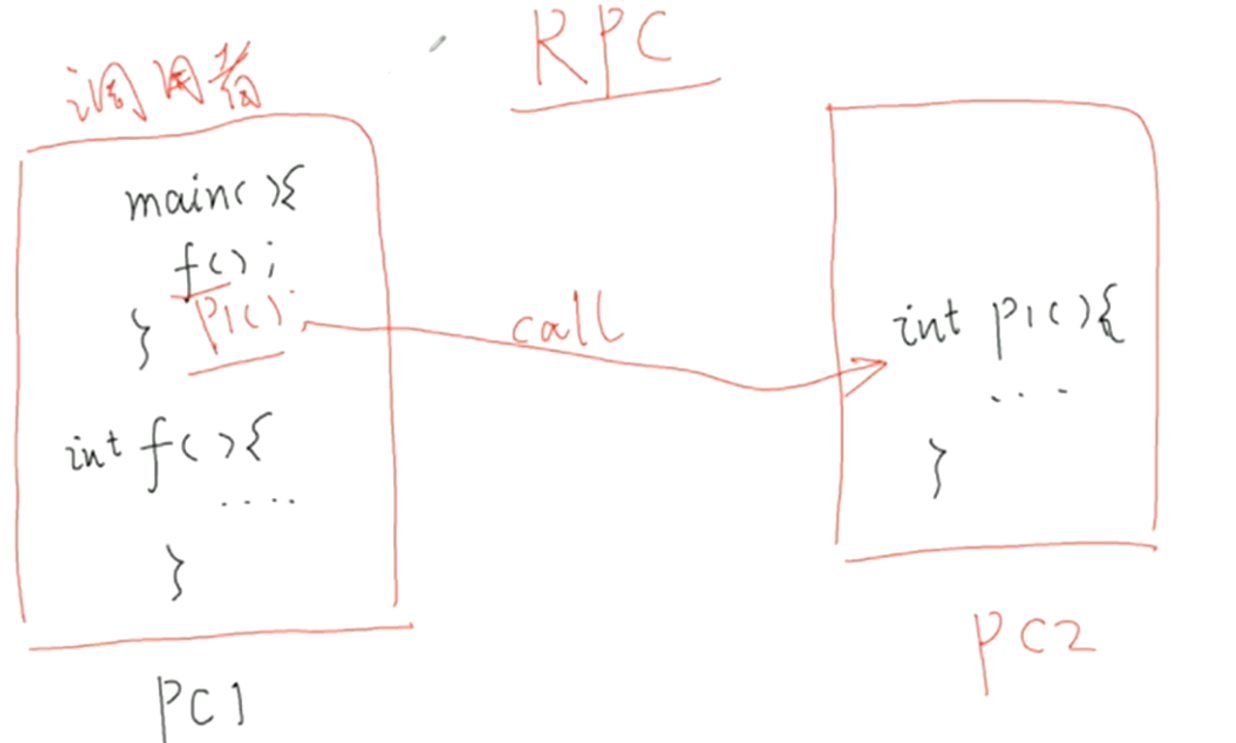 RPC
调用者
main(){
f();
} P1()
int f(){
....
}
PC1
call
int P1(){
...
}
PC2